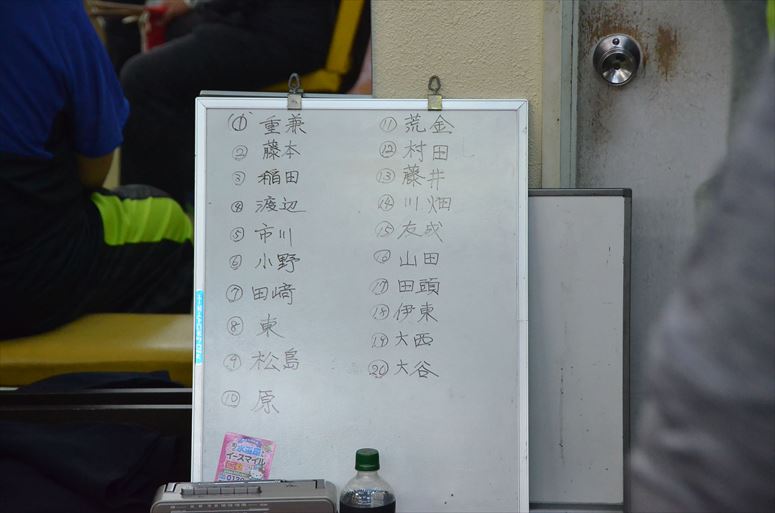 ① 重兼
② 藤本
③ 稲田
④ 渡辺
⑤ 市川
⑥ 小野
⑦ 田﨑
⑧ 東
⑨ 松島
⑩ 原
⑪ 荒金
⑫ 村田
⑬ 藤井
⑭ 川畑
⑮ 友成
⑯ 山田
⑰ 田頭
⑱ 伊東
⑲ 大西
⑳ 大谷
イースマイル